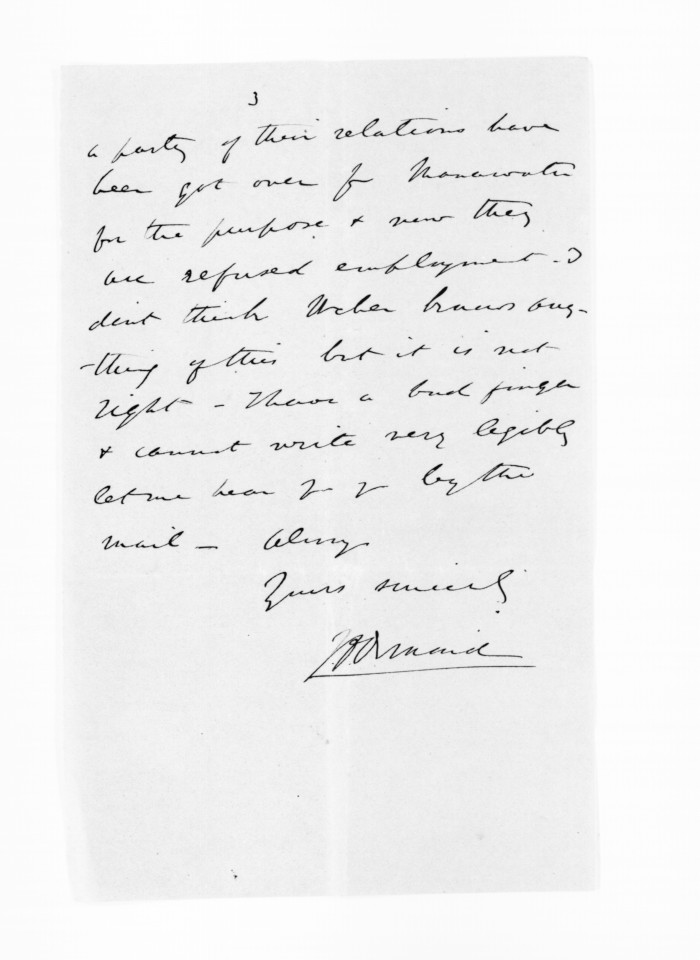 3
a party of their relations have
been got over fr Manawatu
for the purpose & now they
are refused employment - I
dont think Weber knows any-
-thing of this but it is not
right - I have a bad finger
& cannot write very legibly
let me hear fr yr by the
mail - Always
Yours sincerely
J D Ormond